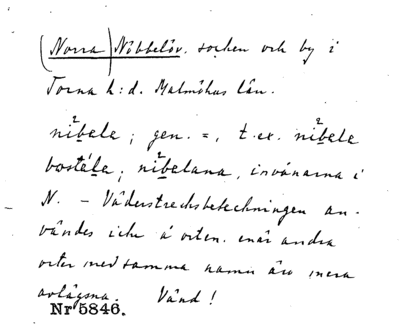 (Norra) Nöbbelöv. socken och by i
Torna h:d. Malmöhus län.
nìbele; gen. =, t. ex. nìbele
bostéle; nìbelana, invånarna i
N. – Väderstrecksbeteckningen an-
vändes icke å orten, enär andra
orter med samma namn äro mera
avlägsna. Vänd!
Nr 5846.